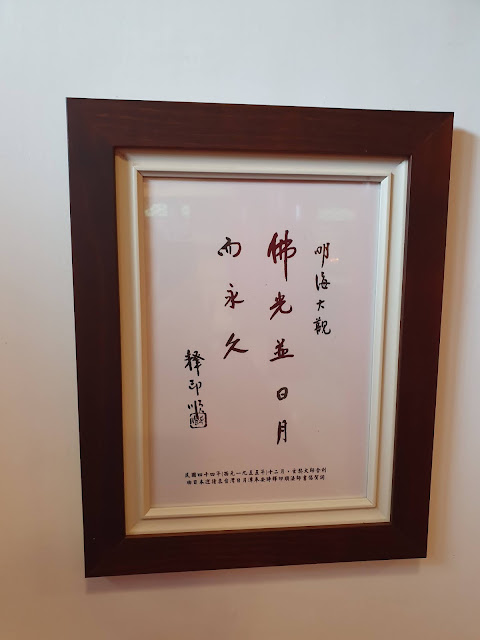 明海大觀
佛光並日月
而永久
釋印順
民國四十四年(西元一九五五年)十二月、玄奘大師舍利
由日本迎請至台灣日月潭奉安時釋印順法師書賀詞